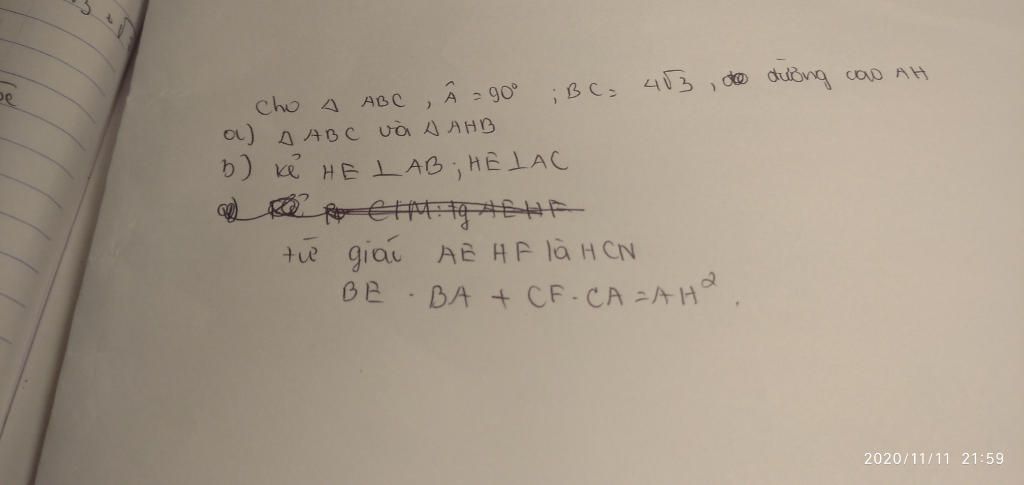 Cho △ ABC, Â = 90° ; BC = 4√3, đường cao AH
a) △ ABC và △ AHB
b) Kẻ HE ⊥ AB ; HE ⊥ AC
CTM: tg AEHF
tứ giác AEHF là HCN
BE . BA + CF . CA = AH².
2020/11/11 21:59